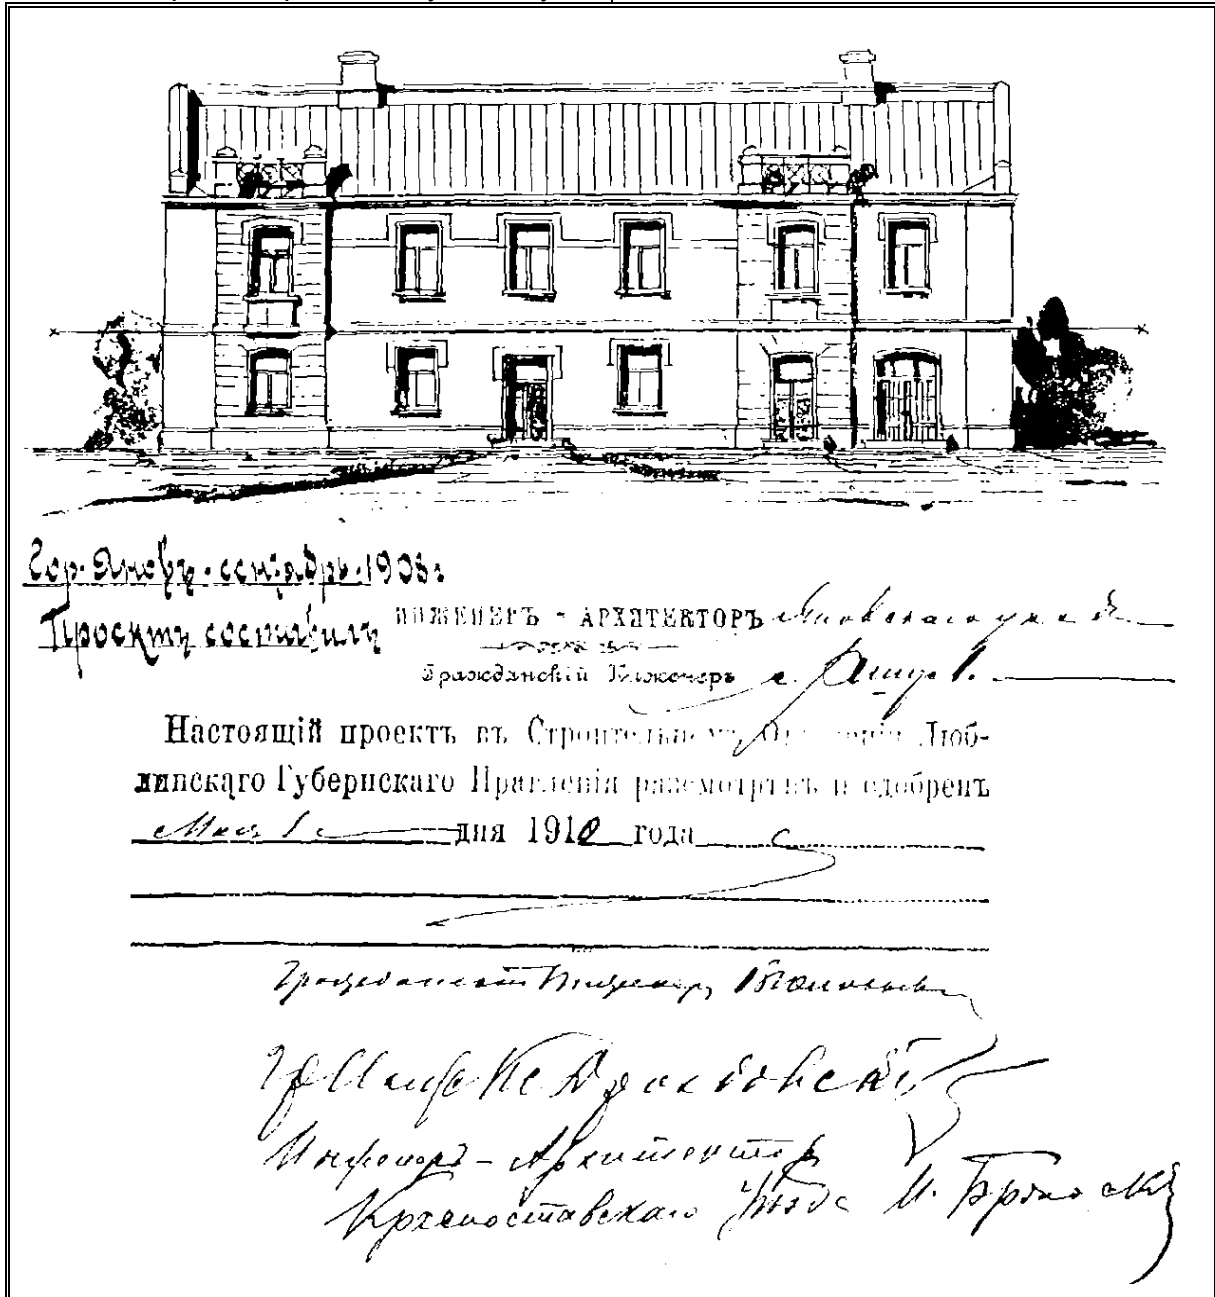 Гор. Яновъ. сентябрь. 1908 г
Проектъ составилъ
ИНЖЕНЕРЪ - АРХИТЕКТОРЪ Яновскаго уезда
Гражданскій Инженеръ
Настоящій проектъ въ Строительномъ Отделеніи Люб-
линскаго Губернскаго Правленія разсмотрѣнъ и одобренъ
дня 1910 года
Гражданскій Инженеръ
Инженеръ - Архитекторъ
Красноставскаго Уѣзда И.